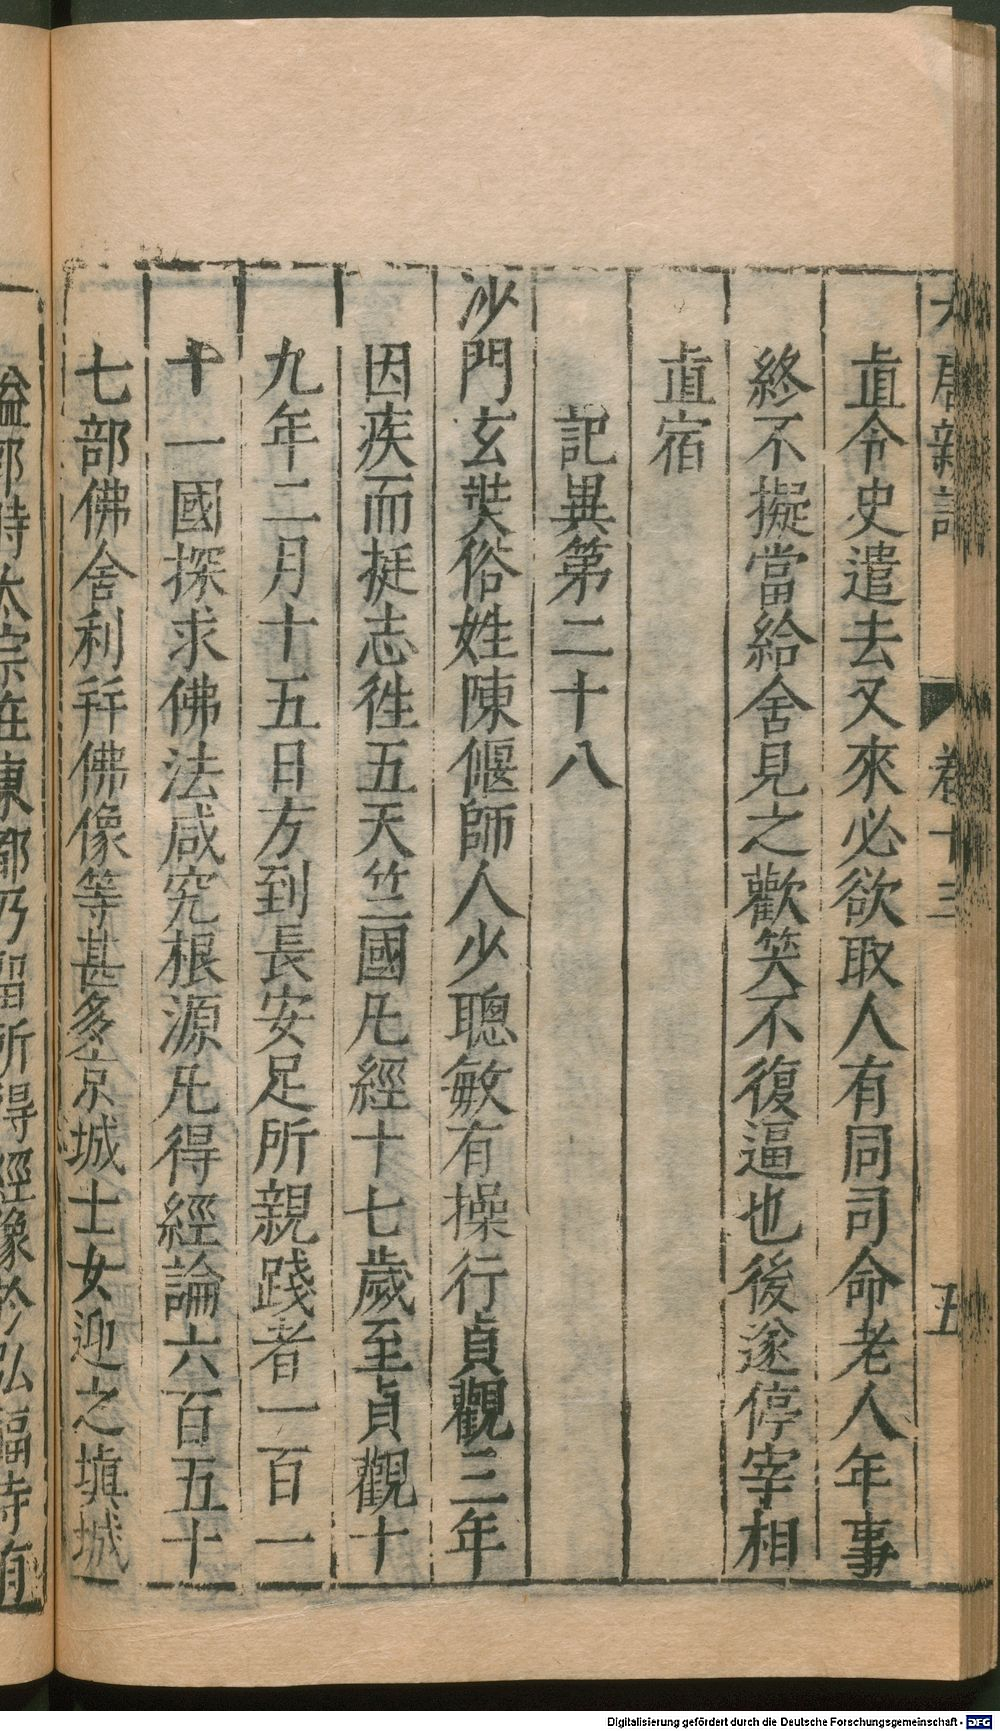 大唐新語 卷十三 五
直令史遣去又來必欲取人有同司命老人年事
終不擬當給舍見之歡笑不復逼也後遂停宰相
直宿
記異第二十八
沙門玄奘俗姓陳偃師人少聰敏有操行貞觀三年
因疾而挺志徃五天竺國凢經十七歲至貞觀十
九年二月十五日方到長安足所親踐者一百一
十一國探求佛法咸究根源凢得經論六百五十
七部佛舍利幷佛像等甚多京城士女迎之填城
隘郭時太宗在東都乃留所得經像於弘福寺有
Digitalisierung gefördert durch die Deutsche Forschungsgemeinschaft - DFG